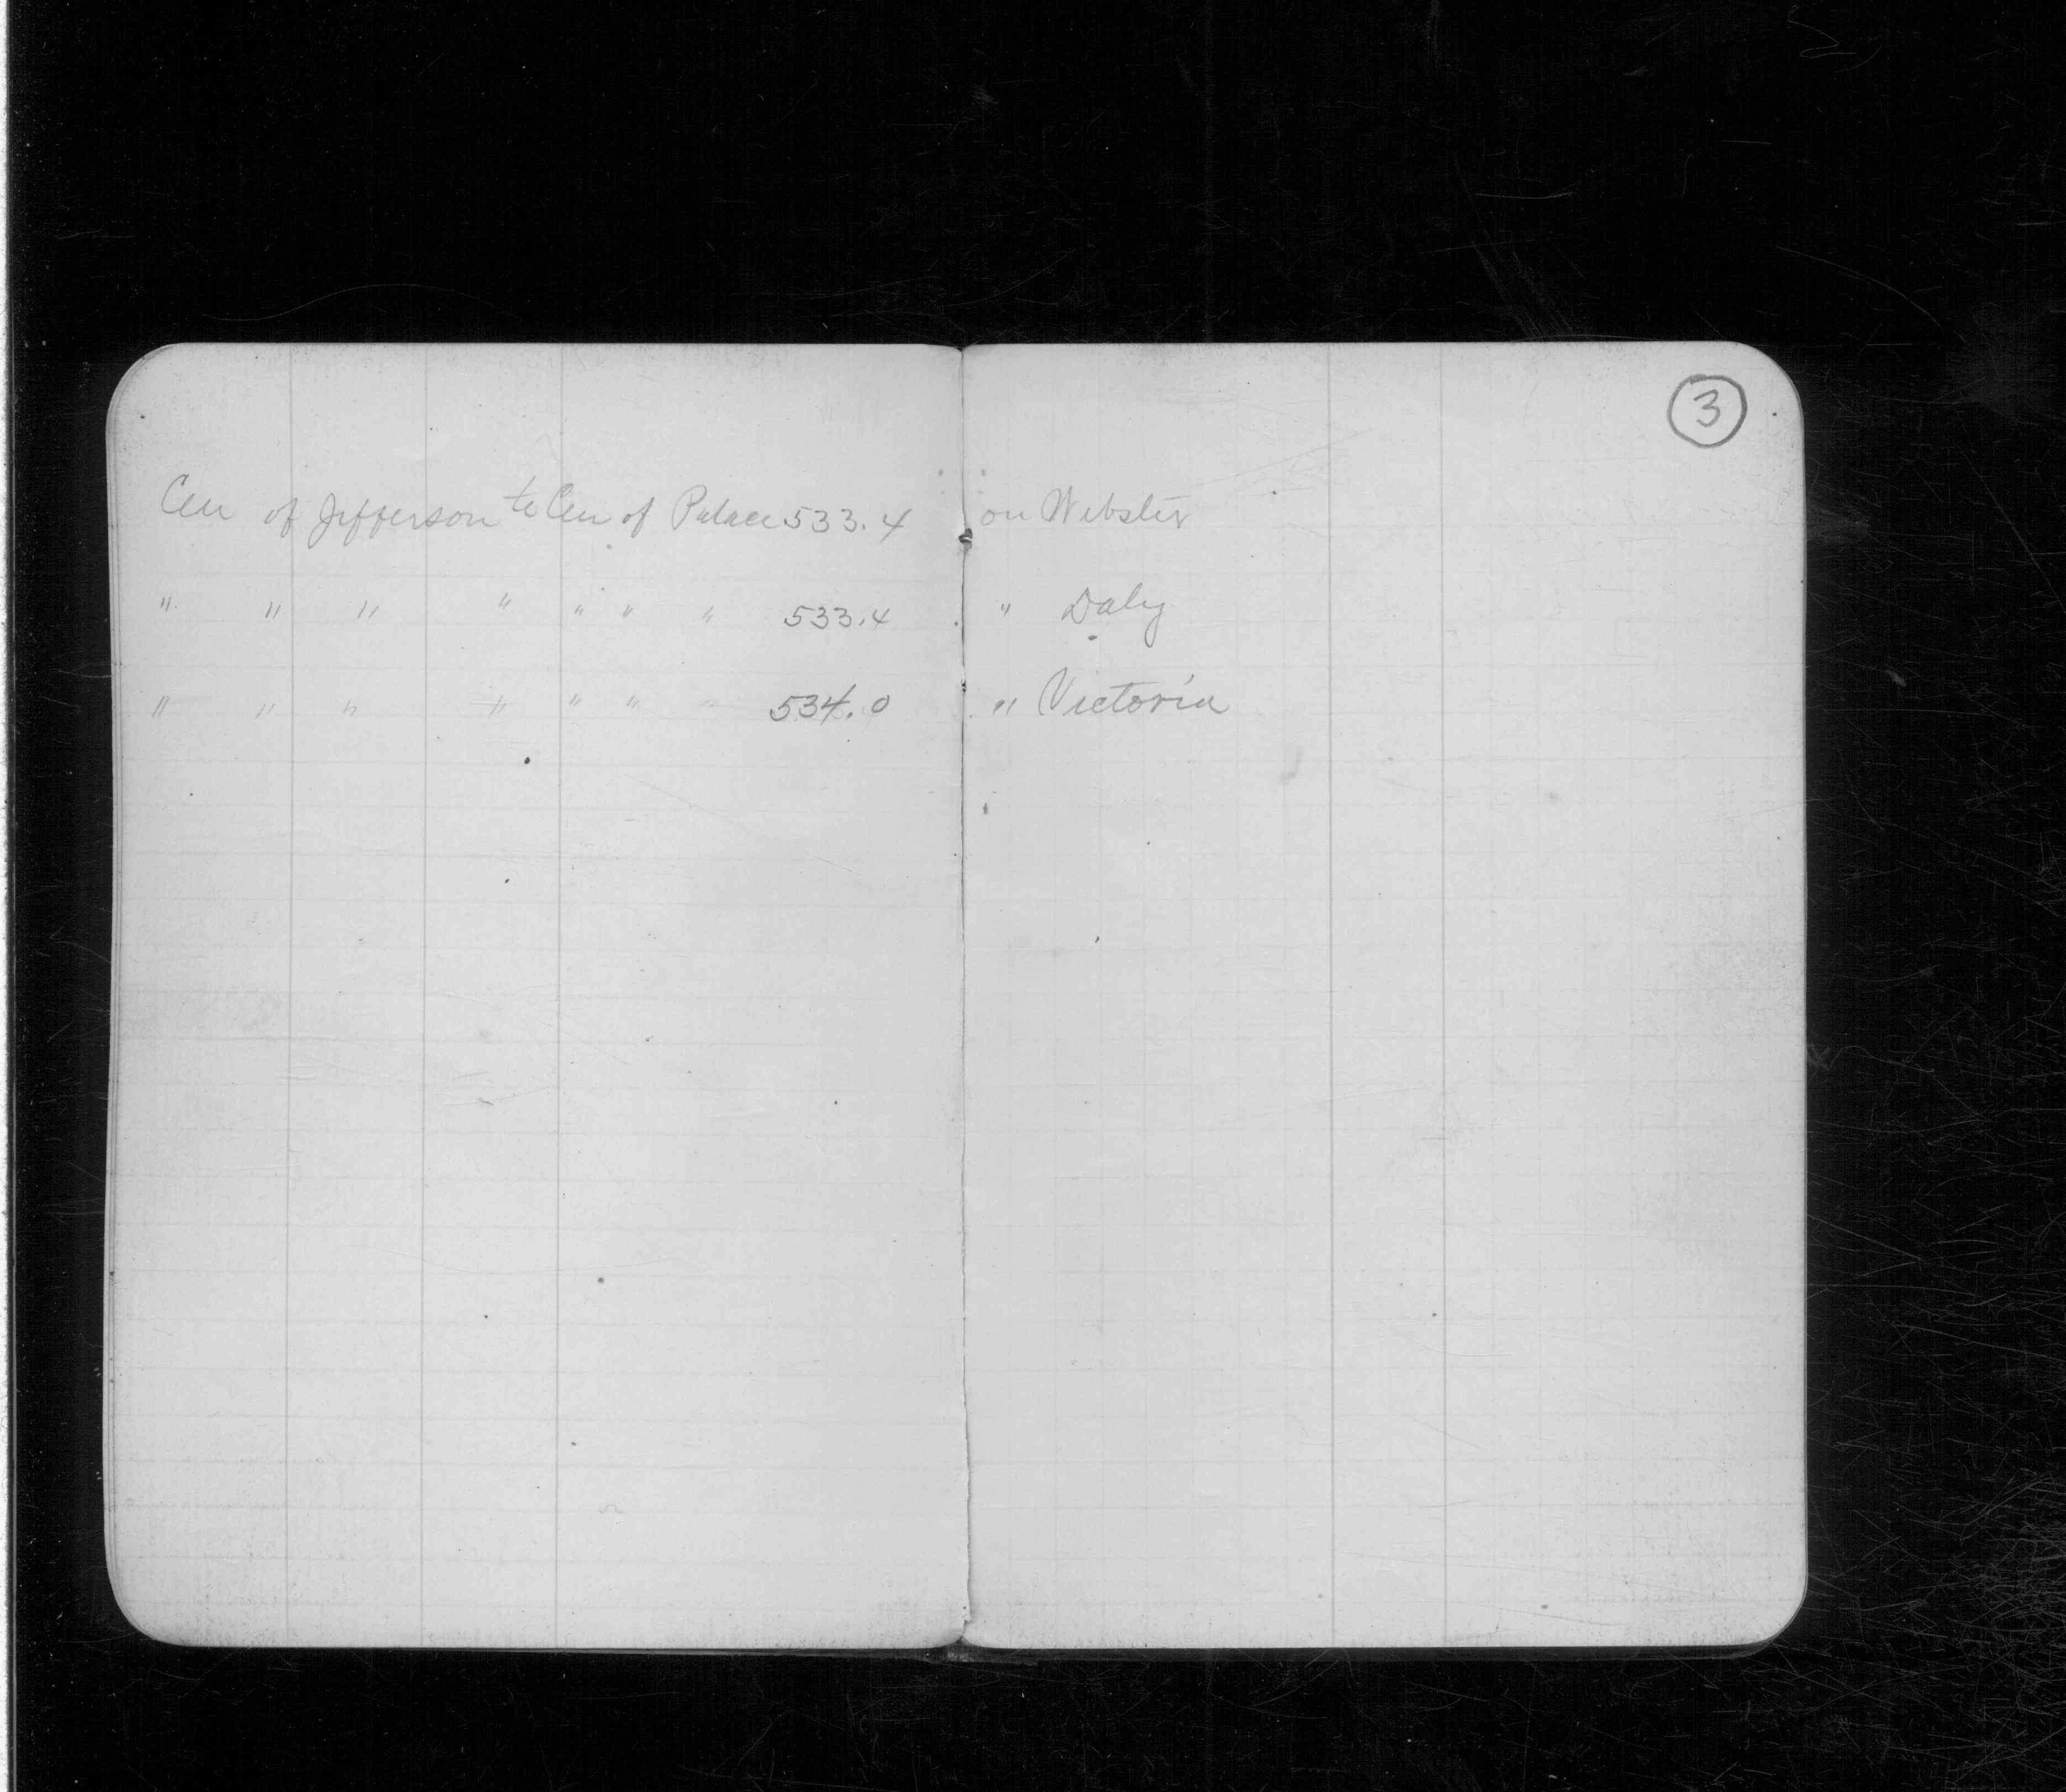 3
Cen of Jefferson to Cen of Palace 533.4 on Webster
" " " " " " " 533.4 " Daly
" " " " " " " 534.0 " Victoria